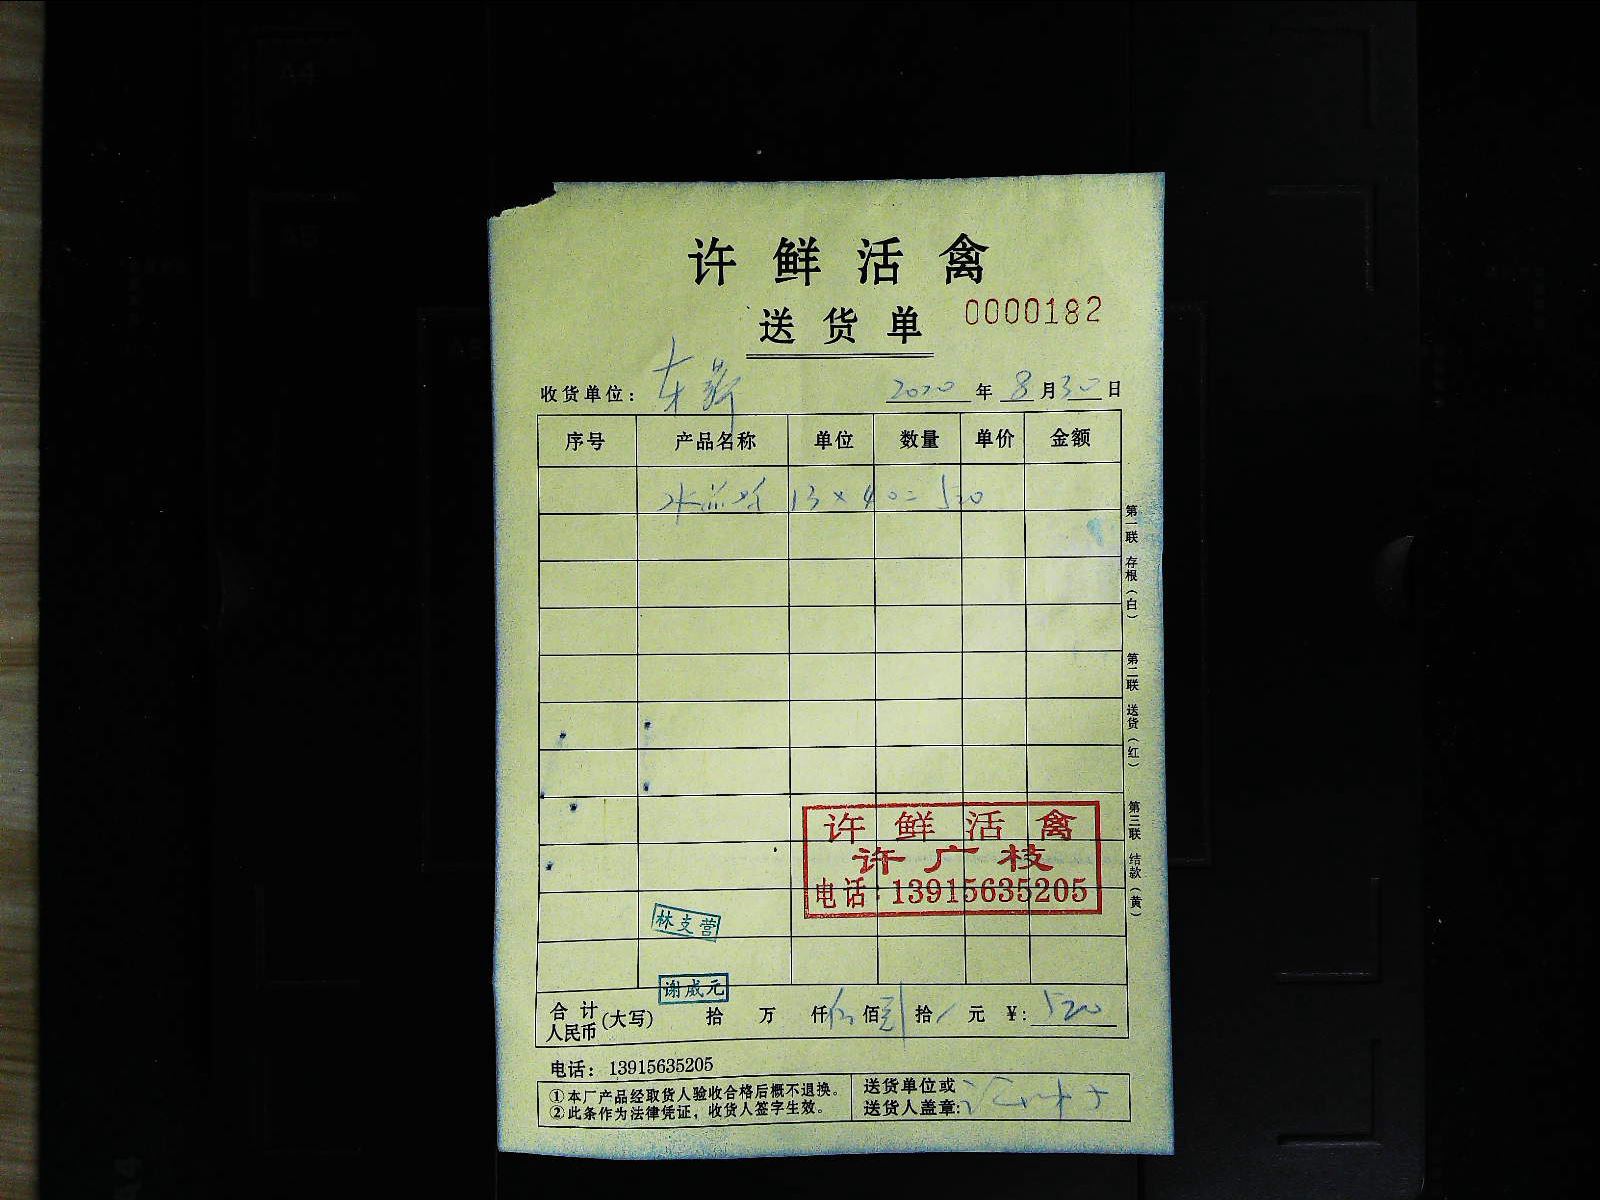 许鲜活禽
送货单 0000182
收货单位: 东 2020 年 8 月 30 日
序号 产品名称 单位 数量 单价 金额
水 13×40=520
第一联 存根(白)
第二联 送货(红)
第三联 结款(黄)
许鲜活禽
许广枝
电话:13915635205
林支营
谢威元
合计人民币(大写) 拾 万 仟 伍 佰 贰 拾 元 ¥: 520
电话: 13915635205
①本厂产品经取货人验收合格后概不退换。
②此条作为法律凭证,收货人签字生效。
送货单位或
送货人盖章: